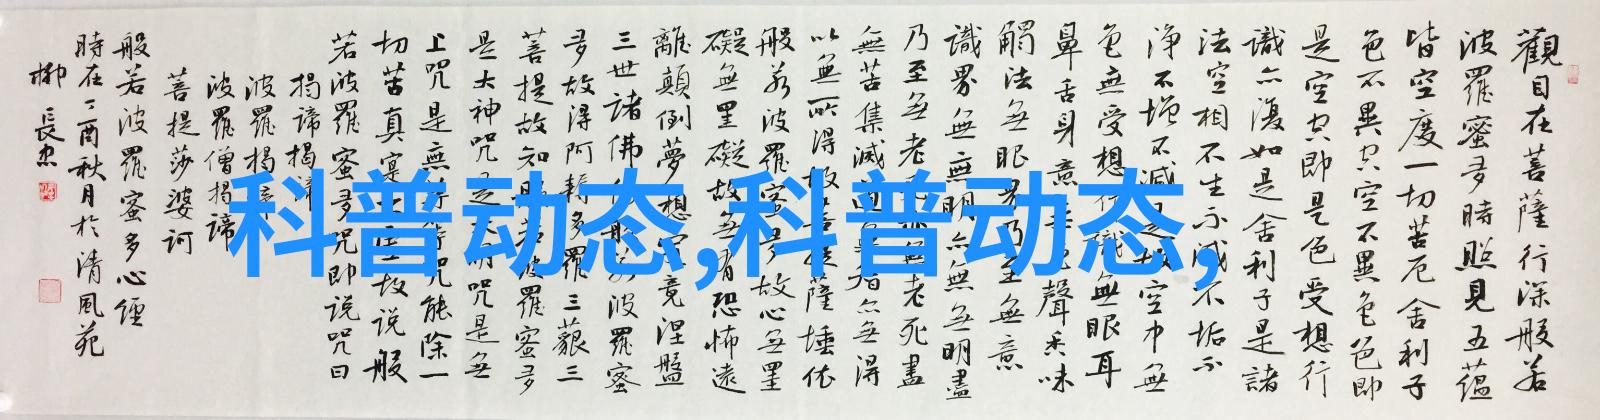 觀自在菩薩行深般若
波羅蜜多時照見五蘊
皆空度一切苦厄舍利子
色不異空空不異色色即
是空空即是色受想行
識亦復如是舍利子是諸
法空相不生不滅不垢不
淨不增不減是故空中無
色無受想行識無眼耳
鼻舌身意無色聲香味
觸法無眼界乃至無意
識界無無明亦無無明盡
乃至無老死亦無老死盡
無苦集滅道無智亦無得
以無所得故菩提薩埵依
般若波羅蜜多故心無罣
礙無罣礙故無有恐怖遠
離顛倒夢想究竟涅盤
三世諸佛依般若波羅蜜
多故得阿耨多羅三藐三
菩提故知般若波羅蜜多
是大神咒是大明咒是無
上咒是無等等咒能除一
切苦真實不虛故說般
若波羅蜜多咒即說咒曰
揭諦揭諦
波羅揭諦
波羅僧揭諦
菩提莎婆訶
般若波羅蜜多心經
時在丁酉秋月於清風苑
科普动态,科普动态,